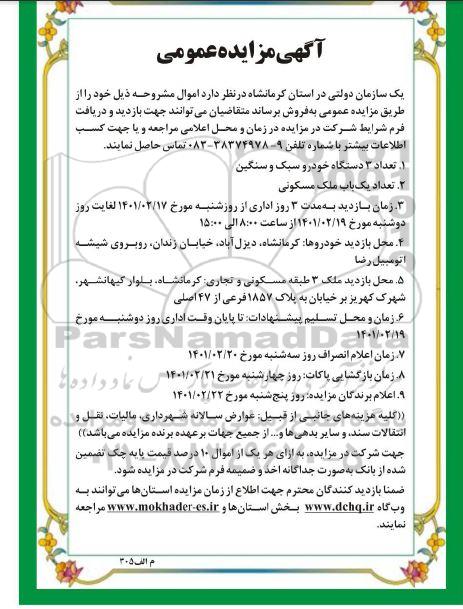 آگهی مزایده عمومی
یک سازمان دولتی در استان کرمانشاه درنظر دارد اموال مشروحه ذیل خود را از
طریق مزایده عمومی به‌فروش برساند متقاضیان می‌توانند جهت بازدید و دریافت
فرم شرایط شرکت در مزایده در زمان و محل اعلامی مراجعه و یا جهت کسب
اطلاعات بیشتر با شماره تلفن ۹-۳۸۳۷۴۹۷۸-۰۸۳ تماس حاصل نمایند.
۱. تعداد ۳ دستگاه خودرو سبک و سنگین
۲. تعداد یک‌باب ملک مسکونی
۳. زمان بازدید به‌مدت ۳ روز اداری از روزشنبه مورخ ۱۴۰۱/۰۲/۱۷ لغایت روز
دوشنبه مورخ ۱۴۰۱/۰۲/۱۹ از ساعت ۸:۰۰ الی ۱۵:۰۰
۴. محل بازدید خودروها: کرمانشاه، دیزل‌آباد، خیابان زندان، روبروی شیشه
اتومبیل رضا
۵. محل بازدید ملک ۳ طبقه مسکونی و تجاری: کرمانشاه، بلوار کیهانشهر،
شهرک کهریز بر خیابان به پلاک ۱۸۵۷ فرعی از ۴۷ اصلی
۶. زمان و محل تسلیم پیشنهادات: تا پایان وقت اداری روز دوشنبه مورخ
۱۴۰۱/۰۲/۱۹
۷. زمان اعلام انصراف روز سه‌شنبه مورخ ۱۴۰۱/۰۲/۲۰
۸. زمان بازگشایی پاکات: روز چهارشنبه مورخ ۱۴۰۱/۰۲/۲۱
۹. اعلام برندگان مزایده: روز پنج‌شنبه مورخ ۱۴۰۱/۰۲/۲۲
((کلیه هزینه‌های جانبی از قبیل: عوارض سالانه شهرداری، مالیات، نقل و
انتقالات سند، و سایر بدهی‌ها و... از جمیع جهات برعهده برنده مزایده می‌باشد))
جهت شرکت در مزایده، به ازای هر یک از اموال ۱۰ درصد قیمت پایه چک تضمین
شده از بانک به‌صورت جداگانه اخذ و ضمیمه فرم شرکت در مزایده شود.
ضمنا بازدید کنندگان محترم جهت اطلاع از زمان مزایده استان‌ها می‌توانند به
وب‌گاه www.dchq.ir بخش استان‌ها و www.mokhader-es.ir مراجعه
نمایند.
م الف۳۰۵
ParsNamadData